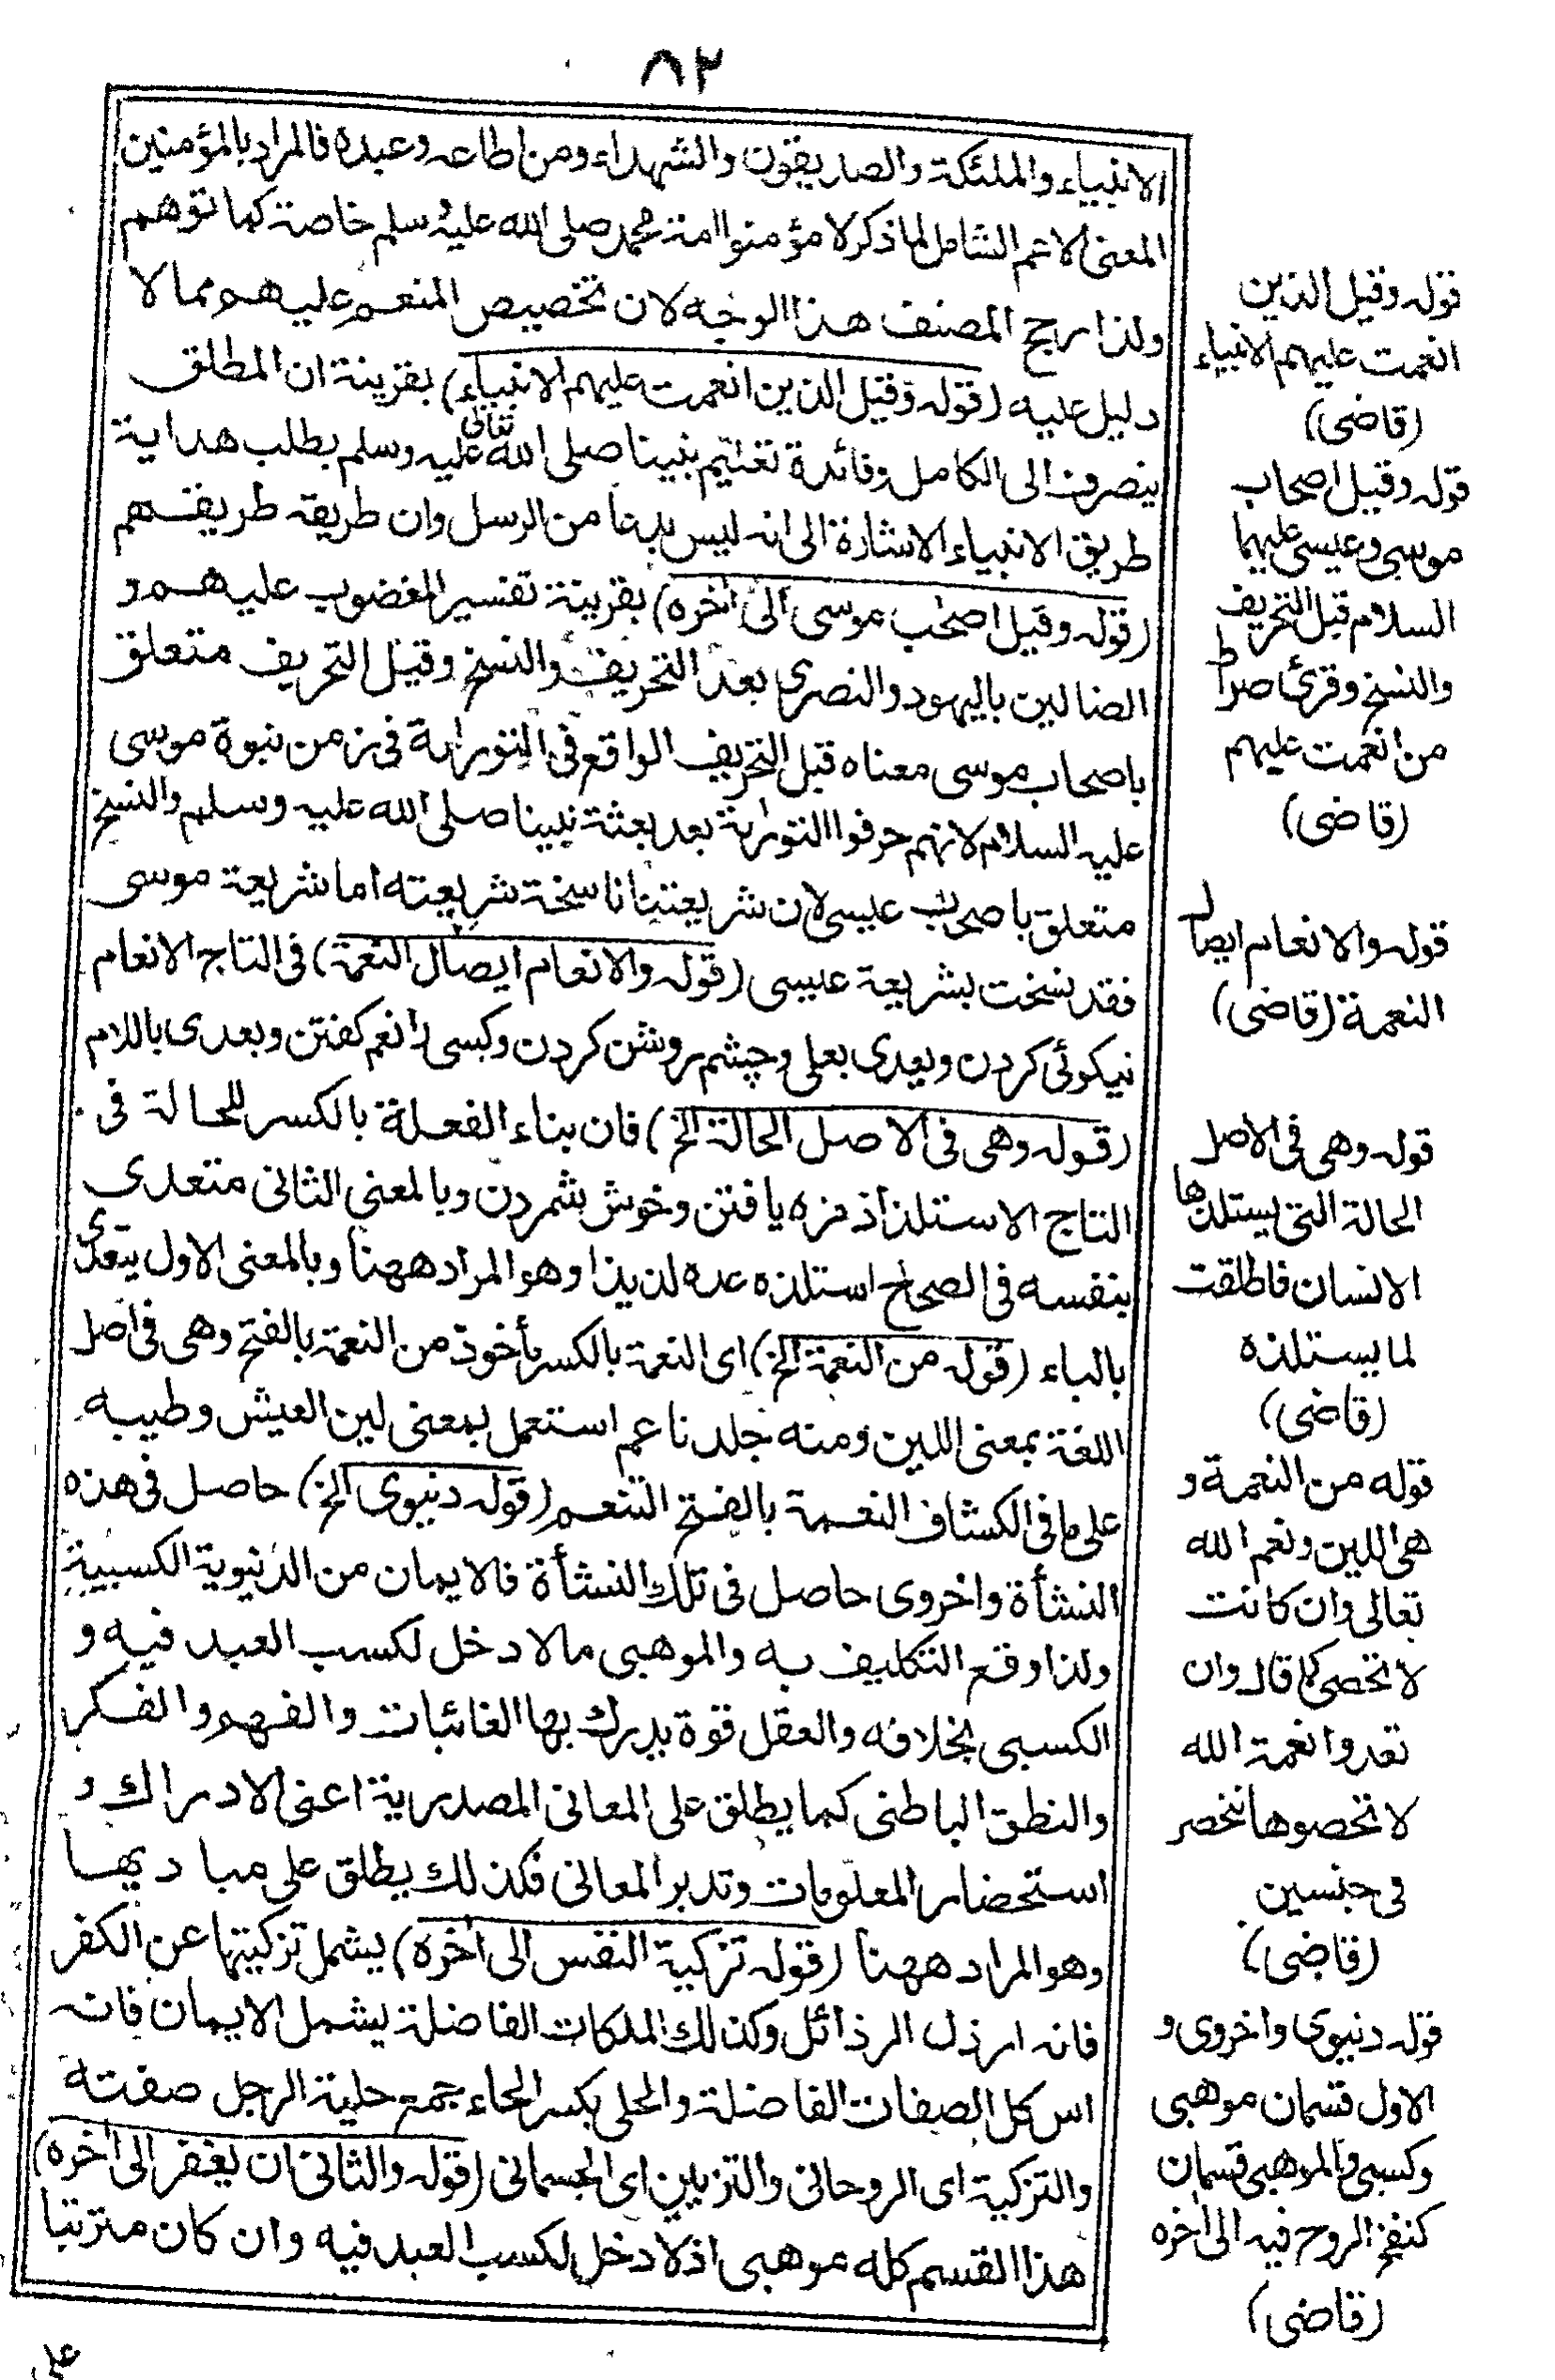 ٨٢
الانبياء والملئكة والصديقون والشهداء ومن اطاعه وعبده فالمراد بالمؤمنين
المعنى الاعم الشامل لما ذكر لا مؤمنوا امة محمد صلى الله عليه وسلم خاصة كما توهم
ولذا رجح المصنف هذا الوجه لان تخصيص المنعم عليهم مما لا
دليل عليه (قوله وقيل الذين انعمت عليهم الانبياء) بقرينة ان المطلق
ينصرف الى الكامل وفائدة تعليم نبينا صلى الله تعالى عليه وسلم بطلب هداية
طريق الانبياء الاشارة الى انه ليس بدعا من الرسل وان طريقه طريقهم
(قوله وقيل اصحب موسى الى اخره) بقرينة تفسير المغضوب عليهم و
الضالين باليهود والنصرى بعد التحريف والنسخ وقبل التحريف متعلق
باصحاب موسى معناه قبل التحريف الواقع فى التورىة فى زمن نبوة موسى
عليه السلام لانهم حرفوا التورىة بعد بعثة نبينا صلى الله عليه وسلم والنسخ
متعلق باصحب عيسى لان شريعتنا ناسخة شريعته اما شريعة موسى
فقد نسخت بشريعة عيسى (قوله والانعام ايصال النعمة) فى التاج الانعام
نيكوئى كردن ويعدى بعلى وچشم روشن كردن وكسى را نعم كفتن ويعدى باللام
(قوله وهى فى الاصل الحالة الخ) فان بناء الفعلة بالكسر للحالة فى
التاج الاستلذاذ مزه يافتن وخوش بشمردن وبالمعنى الثانى متعدى
بنفسه فى الصحاح استلذه عده لذيذا وهو المراد ههنا وبالمعنى الاول يتعدى
بالباء (قوله من النعمة الخ) اى النعمة بالكسر مأخوذ من النعمة بالفتح وهى فى اصل
اللغة بمعنى اللين ومنه جلد ناعم استعمل بمعنى لين العيش وطيبه
على ما فى الكشاف النعمة بالفتح التنعم (قوله دنيوى الخ) حاصل فى هذه
النشأة واخروى حاصل فى تلك النشأة فالايمان من الدنيوية الكسبية
ولذا وقع التكليف به والموهبى مالا دخل لكسب العبد فيه و
الكسبى بخلافه والعقل قوة يدرك بها الغائبات والفهم والفكر
والنطق الباطنى كما يطلق على المعانى المصدرية اعنى الادراك و
استحضار المعلومات وتدبر المعانى فكذلك يطلق على مباديها
وهو المراد ههنا (قوله تزكية النفس الى اخره) يشمل تزكيتها عن الكفر
فانه ارذل الرذائل وكذلك الملكات الفاضلة يشمل الايمان فانه
اس كل الصفات الفاضلة والحلى بكسر الحاء جمع حلية الرجل صفته
والتزكية اى الروحانى والتزيين اى الجسمانى (قوله والثانى ان يغفر الى اخره)
هذا القسم كله موهبى اذ لا دخل لكسب العبد فيه وان كان مترتبا
على
قوله وقيل الذين
انعمت عليهم الانبياء
(قاضى)
قوله وقيل اصحاب
موسى وعيسى عليهما
السلام قبل التحريف
والنسخ وقرئ صراط
من انعمت عليهم
(قاضى)
قوله والانعام ايصال
النعمة (قاضى)
قوله وهى فى الاصل
الحالة التى يستلذها
الانسان فاطلقت
لما يستلذه
(قاضى)
قوله من النعمة و
هى اللين ونعم الله
تعالى وان كانت
لا تحصى كما قال وان
تعدوا نعمة الله
لا تحصوها تنحصر
فى جنسين
(قاضى)
قوله دنيوى واخروى و
الاول قسمان موهبى
وكسبى والموهبى قسمان
كنفخ الروح فيه الى اخره
(قاضى)